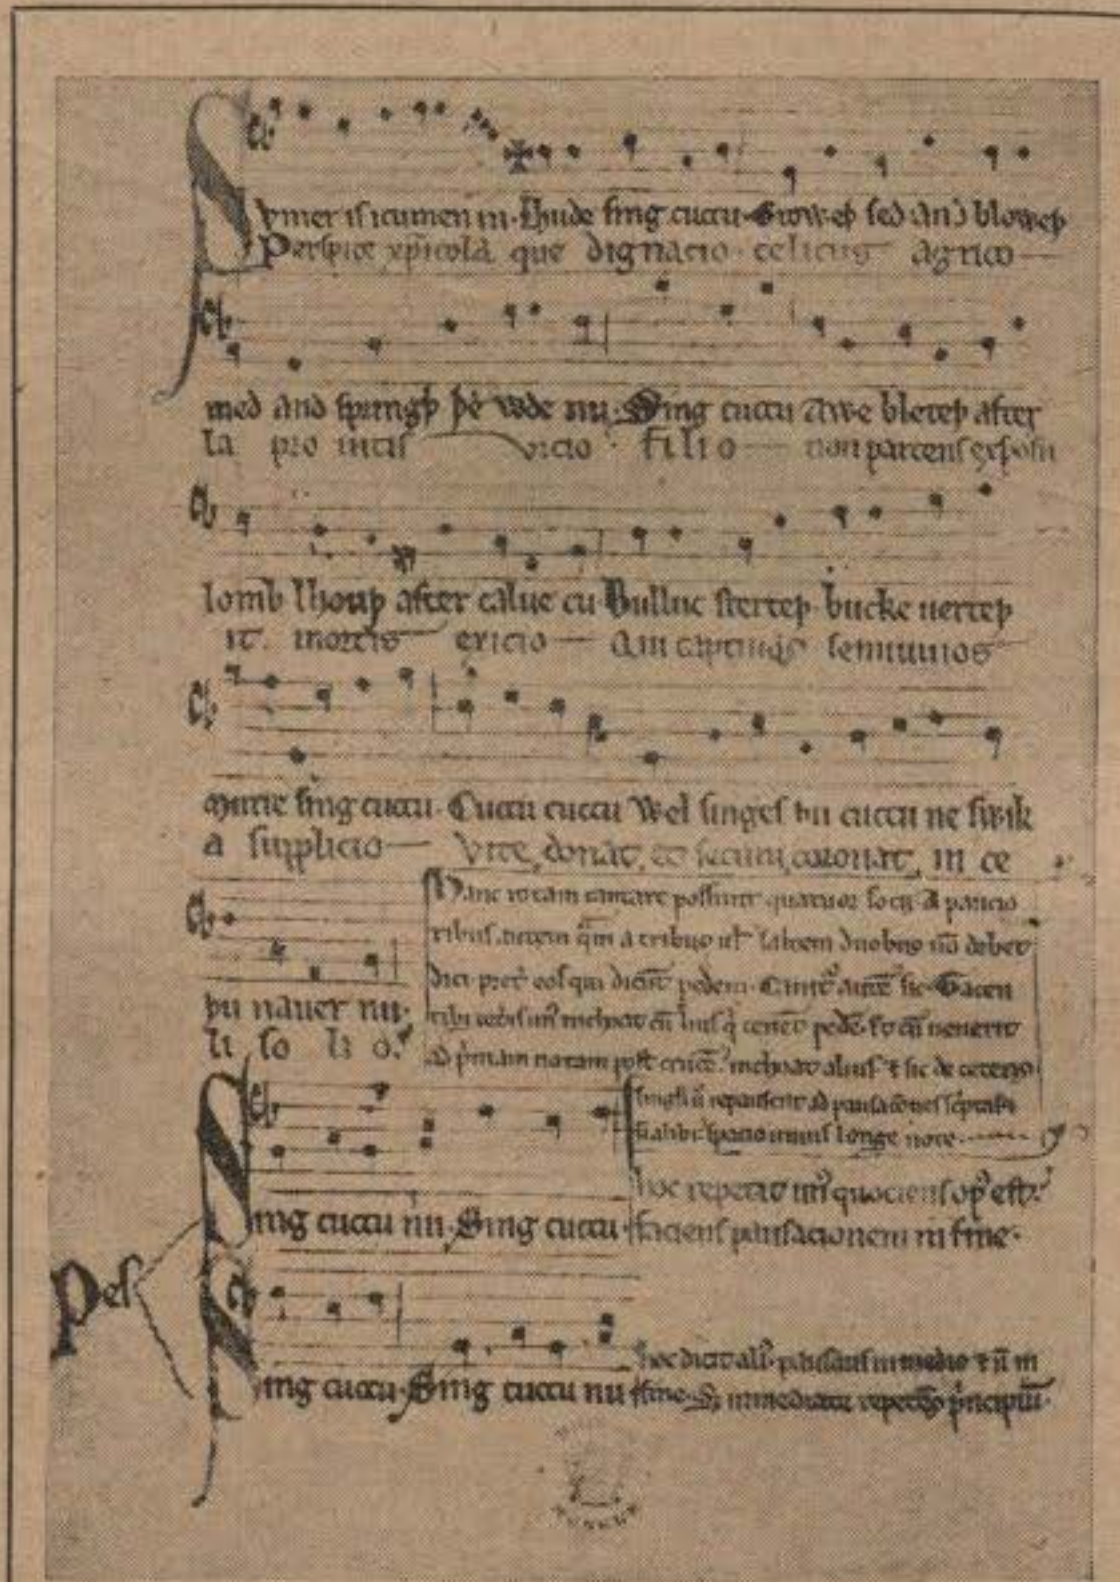 Sumer is icumen in. Lhude sing cuccu. Groweþ sed and bloweþ
Perspice xp̄icola que dignacio. celicus agrico
med and springþ þe wde nu. Sing cuccu Awe bleteþ after
la pro uitis vicio. filio non parcens exposu
lomb lhouþ after calue cu Bulluc sterteþ. bucke uerteþ
it. mortis exicio Qui captiuos semiuiuos
murie sing cuccu. Cuccu cuccu Wel singes þu cuccu ne swik
a supplicio Vite, donat, et secum, coronat, in ce
þu nauer nu.
li so li o.
Hanc rotam cantare possunt quatuor socii. A paucio
ribus autem q̄m a tribus uł saltem duobus nō debet
dici. pret̾ eos qui dicūt pedem. Canit᷑ autē sic. Tacen
tibꝫ ceteris un᷒ inchoat cū hiis q̇ tenent pedē. Et cū uenerit
ad p̄mam notam post crucē. inchoat alius. ⁊ sic de ceteris.
singłi ū repausent ad pausaciones scriptas ⁊
n̄ alibi. spacio unius longe note.
hoc repetit un᷒ quociens op᷒ est.
Sing cuccu nu. Sing cuccu. faciens pausacionem in fine.
Pes
hoc dicit ali᷒. pausans in medio ⁊ n̄ in
Sing cuccu. Sing cuccu nu fine. Sꝫ immediate repetēs p̄ncipiū.